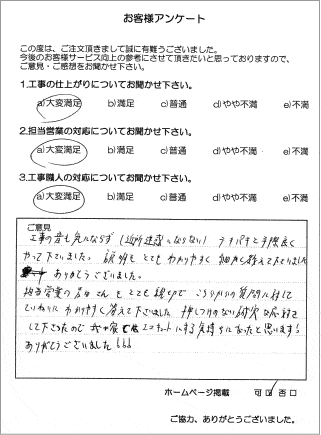 お客様アンケート
この度は、ご注文頂きまして誠に有難うございました。
今後のお客様サービス向上の参考にさせて頂きたいと思っておりますので、
ご意見・ご感想をお聞かせ下さい。
1.工事の仕上がりについてお聞かせ下さい。
a)大変満足 b)満足 c)普通 d)やや不満 e)不満
2.担当営業の対応についてお聞かせ下さい。
a)大変満足 b)満足 c)普通 d)やや不満 e)不満
3.工事職人の対応についてお聞かせ下さい。
a)大変満足 b)満足 c)普通 d)やや不満 e)不満
ご意見
工事の音も気にならず(近所迷惑にならない) テキパキと手際良く
やって下さいました。説明もとてもわかりやすく 細かく教えて下さいました
ありがとうございました。
担当営業の さんもとても親切で こちらからの質問に対して
ていねいに わかりやすく答えて下さいました 押しつけのない誠実な応対を
して下さったので 我が家でもエコキュートにする気持ちになったと思います!
ありがとうございました!!!
ホームページ掲載 可 否
ご協力、ありがとうございました。